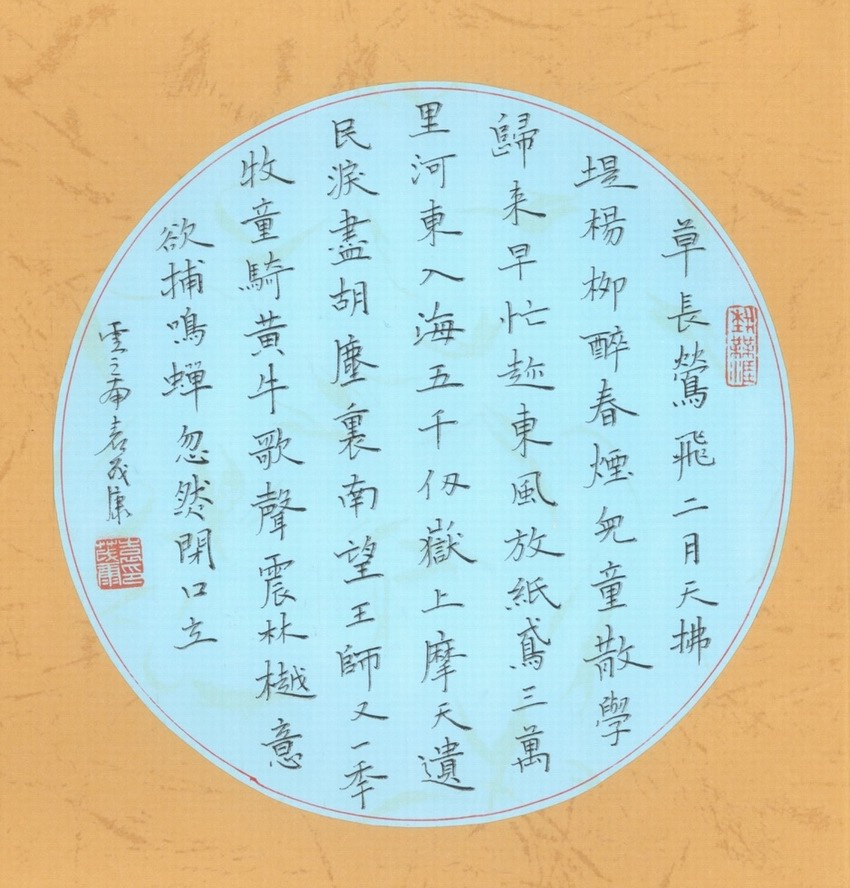 草長鶯飛二月天拂
堤楊柳醉春煙兒童散學
歸来早忙趂東風放紙鳶三萬
里河東入海五千仞嶽上摩天遺
民淚盡胡塵裏南望王師又一秊
牧童騎黃牛歌聲震林樾意
欲捕鳴蟬忽然閉口立
雲之南袁茂康
袁茂康印